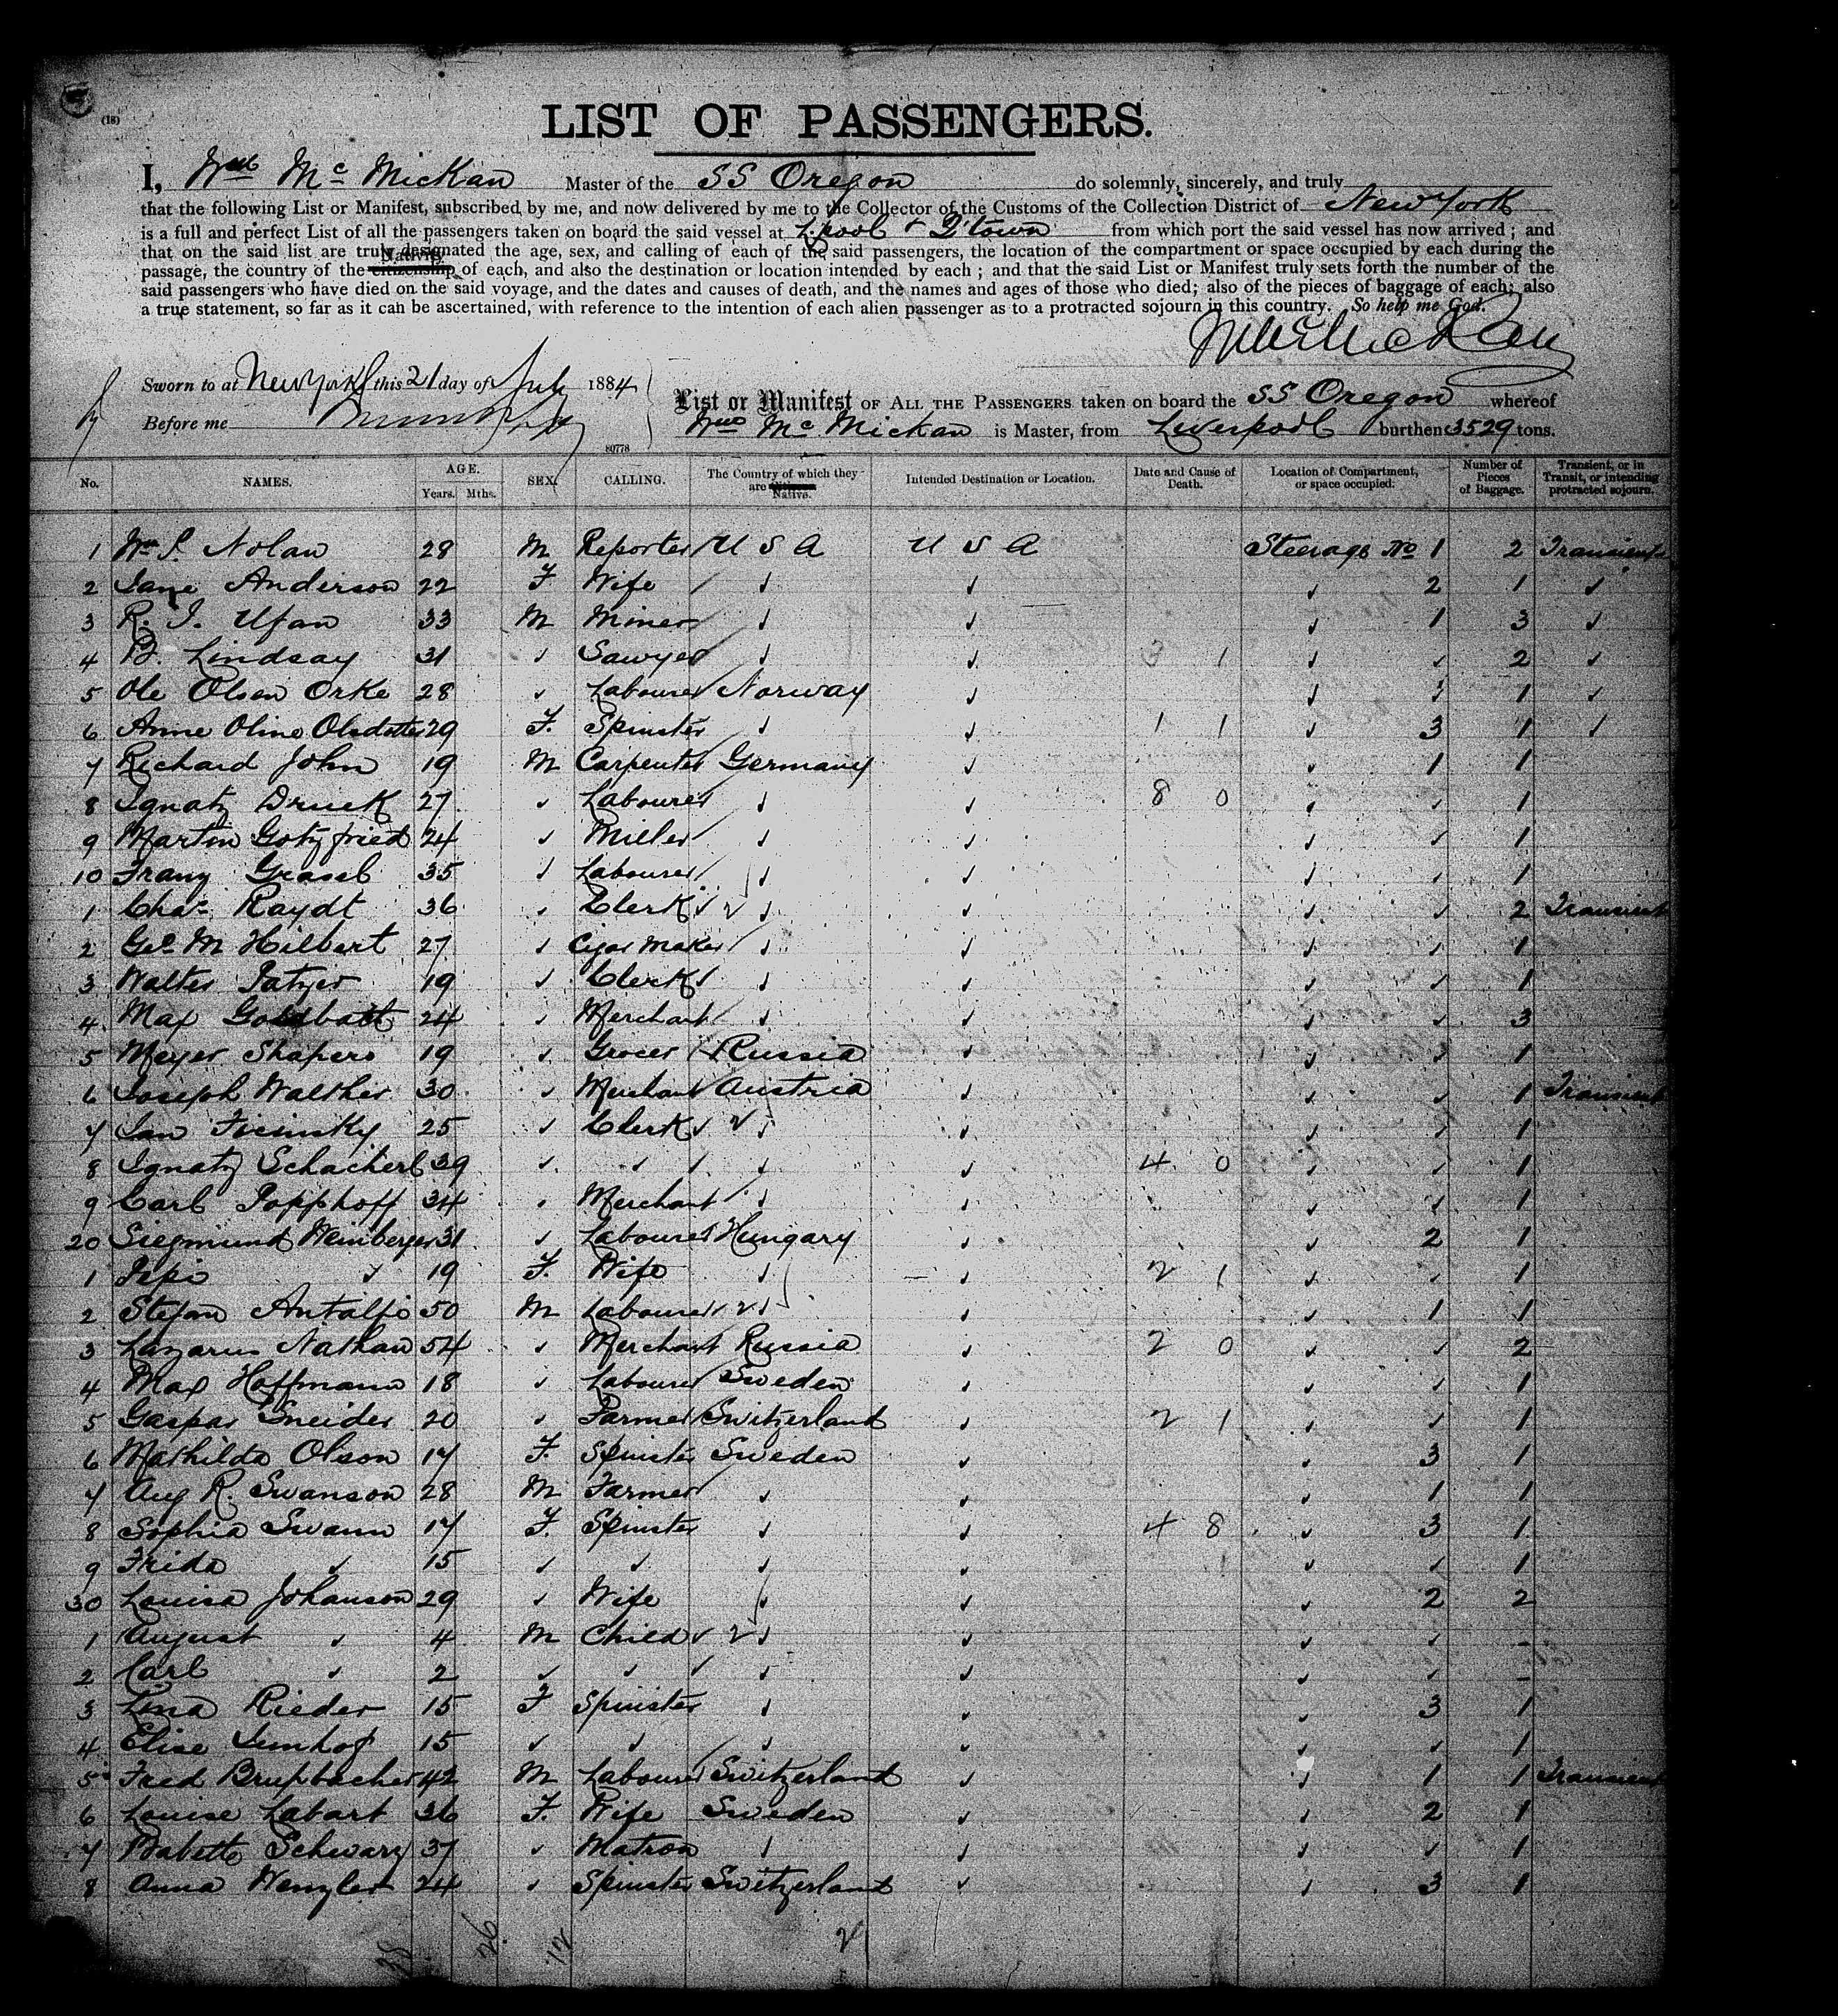 (18)
LIST OF PASSENGERS.
I, Wm Mc Mickan Master of the SS Oregon do solemnly, sincerely, and truly
that the following List or Manifest, subscribed by me, and now delivered by me to the Collector of the Customs of the Collection District of New York
is a full and perfect List of all the passengers taken on board the said vessel at L'pool & Q'town from which port the said vessel has now arrived; and
that on the said list are truly designated the age, sex, and calling of each of the said passengers, the location of the compartment or space occupied by each during the
Nativity
passage, the country of the citizenship of each, and also the destination or location intended by each; and that the said List or Manifest truly sets forth the number of the
said passengers who have died on the said voyage, and the dates and causes of death, and the names and ages of those who died; also of the pieces of baggage of each; also
a true statement, so far as it can be ascertained, with reference to the intention of each alien passenger as to a protracted sojourn in this country. So help me God.
Wm McMickan
Sworn to at New York this 21 day of July 1884
Before me
List or Manifest OF ALL THE PASSENGERS taken on board the SS Oregon whereof
Wm Mc Mickan is Master, from Liverpool burthen 3529 tons.
80778
No. NAMES. AGE. Years. Mths. SEX. CALLING. The Country of which they are Native. Intended Destination or Location. Date and Cause of Death. Location of Compartment, or space occupied. Number of Pieces of Baggage. Transient, or in Transit, or intending protracted sojourn.
1 Wm S. Nolan 28 M Reporter U S A U S A Steerage No 1 2 Transient
2 Jane Anderson 22 F Wife ✓ ✓ ✓ 2 1 ✓
3 R. J. Ufan 33 M Miner ✓ ✓ ✓ 1 3 ✓
4 B. Lindsay 31 ✓ Sawyer ✓ ✓ 3 1 ✓ ✓ 2 ✓
5 Ole Olsen Orke 28 ✓ Labourer Norway ✓ ✓ ✓ 1 ✓
6 Anne Oline Olsdotter 29 F. Spinster ✓ ✓ 1 1 ✓ 3 1 ✓
7 Richard John 19 M Carpenter Germany ✓ ✓ 1 1
8 Ignatz Druck 27 ✓ Labourer ✓ ✓ 8 0 ✓ ✓ 1
9 Martin Gotzfried 24 ✓ Miller ✓ ✓ ✓ ✓ 1
10 Franz Grassl 35 ✓ Labourer ✓ ✓ ✓ ✓ 1
1 Chas Raydt 36 ✓ Clerk ✓ ✓ ✓ ✓ 2 Transient
2 Geo M Hilbert 27 ✓ Cigar Maker ✓ ✓ ✓ ✓ 1
3 Walter Patzer 19 ✓ Clerk ✓ ✓ ✓ ✓ 1
4 Max 24 ✓ Merchant ✓ ✓ ✓ ✓ 3
5 Meyer Shapero 19 ✓ Grocer Russia ✓ ✓ ✓ 1
6 Joseph Walther 30 ✓ Merchant Austria ✓ ✓ ✓ 1 Transient
7 Jan Ficinsky 25 ✓ Clerk ✓ ✓ ✓ ✓ 1
8 Ignatz Schacherl 39 ✓ ✓ ✓ ✓ 4 0 ✓ ✓ 1
9 Carl Popphoff 34 ✓ Merchant ✓ ✓ ✓ ✓ 1
20 Siegmund Weinberger 31 ✓ Labourer Hungary ✓ ✓ 2 1
1 Pepi ✓ 19 F. Wife ✓ ✓ 2 1 ✓ ✓ 1
2 Stefan Antalfi 50 M Labourer ✓ ✓ ✓ 1 1
3 Lazarus Nathan 54 ✓ Merchant Russia ✓ 2 0 ✓ ✓ 2
4 Max Hoffmann 18 ✓ Labourer Sweden ✓ ✓ ✓ 1
5 Gaspar Sneider 20 ✓ Farmer Switzerland ✓ 2 1 ✓ ✓ 1
6 Mathilda Olsson 17 F. Spinster Sweden ✓ ✓ 3 1
7 Aug R. Swanson 28 M Farmer ✓ ✓ ✓ 1 1
8 Sophia Swann 17 F. Spinster ✓ ✓ 4 8 ✓ 3 1
9 Frida ✓ 15 ✓ ✓ ✓ ✓ ✓ ✓ 1
30 Louisa Johanson 29 ✓ Wife ✓ ✓ ✓ 2 2
1 August ✓ 4 M Child ✓ ✓ ✓ ✓ -
2 Carl ✓ 2 ✓ ✓ ✓ ✓ ✓ ✓ -
3 Lina Rieder 15 F Spinster ✓ ✓ ✓ 3 1
4 Elise Imhof 15 ✓ ✓ ✓ ✓ ✓ ✓ 1
5 Fred Brupbacher 42 M Labourer Switzerland ✓ ✓ 1 1 Transient
6 Louise Labart 36 F. Wife Sweden ✓ ✓ 2 1
7 Babette Schwarz 37 ✓ Matron ✓ ✓ ✓ ✓ 1
8 Anna Wenzler 24 ✓ Spinster Switzerland ✓ ✓ 3 1
38 26 12 2